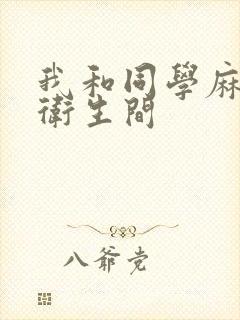 我和同學麻
衛生間
八爺党